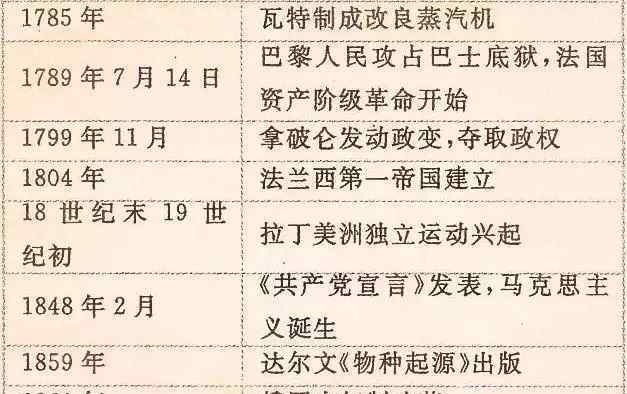 1785 年
瓦特制成改良蒸汽机
1789 年 7 月 14 日
巴黎人民攻占巴士底狱,法国
资产阶级革命开始
1799 年 11 月
拿破仑发动政变,夺取政权
1804 年
法兰西第一帝国建立
18 世纪末 19 世
纪初
拉丁美洲独立运动兴起
1848 年 2 月
《共产党宣言》发表,马克思主
义诞生
1859 年
达尔文《物种起源》出版